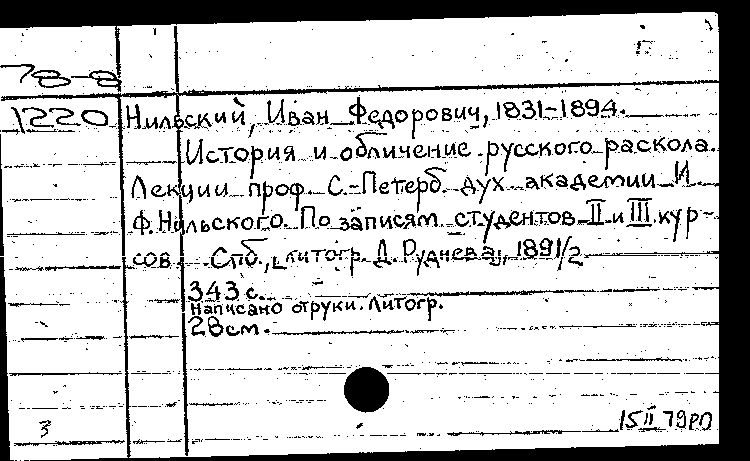 78-8
1220
Нильский, Иван Федорович, 1831-1894.
История и обличение русского раскола.
Лекции проф. С.-Петерб. дух. академии И.
Ф. Нильского. По записям студентов II и III кур-
сов. Спб., литогр. Д. Руднева, 1891/2
343 с.
Написано отруки. Литогр.
28 см.
3
15 II 79